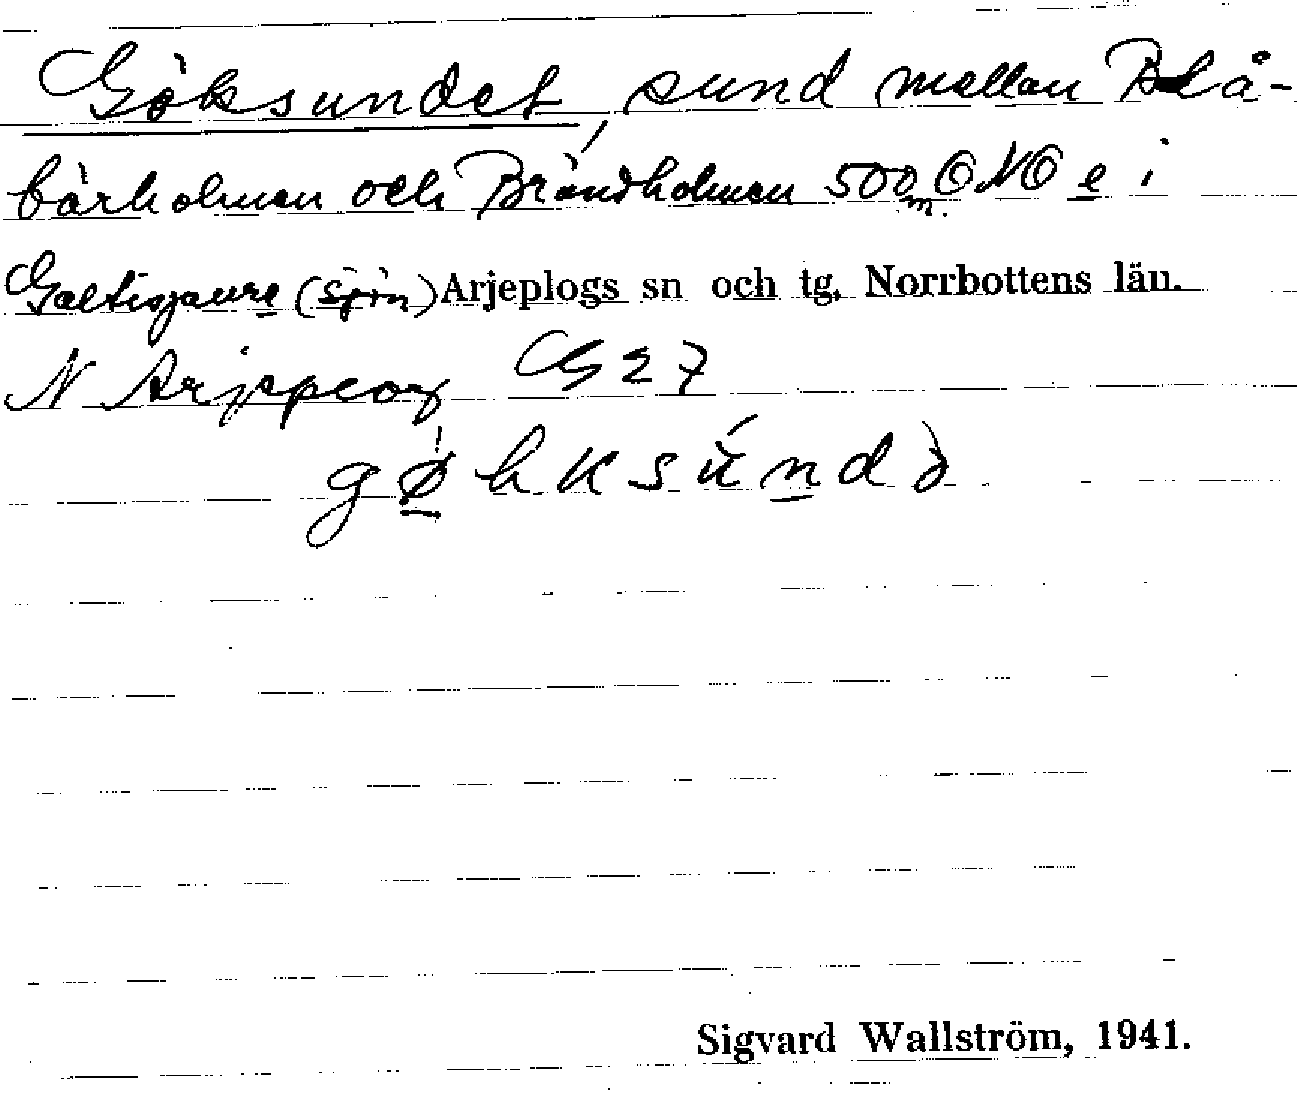 Göksundet, sund mellan Blå-
bärholmen och Brändholmen 500 m. ONO e i
Galtisjaure (sjön) Arjeplogs sn och tg. Norrbottens län.
N Arjeplog G 27
gøhksúndə
Sigvard Wallström, 1941.